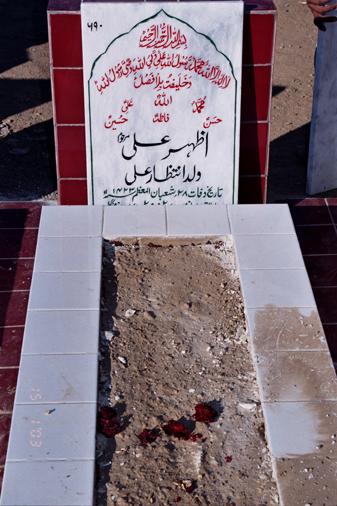 ۶۹۰
بسم اللہ الرحمن الرحیم
لا الہ الا اللہ محمد رسول اللہ علی ولی اللہ وصی رسول اللہ
وخلیفتہ بلا فصل
اللہ
محمد علی
حسن فاطمہ حسین
اظہر علی مرحوم
ولد انتظار علی
تاریخ وفات ۲۸ شعبان المعظم ۱۴۲۳ھ
15 1 03